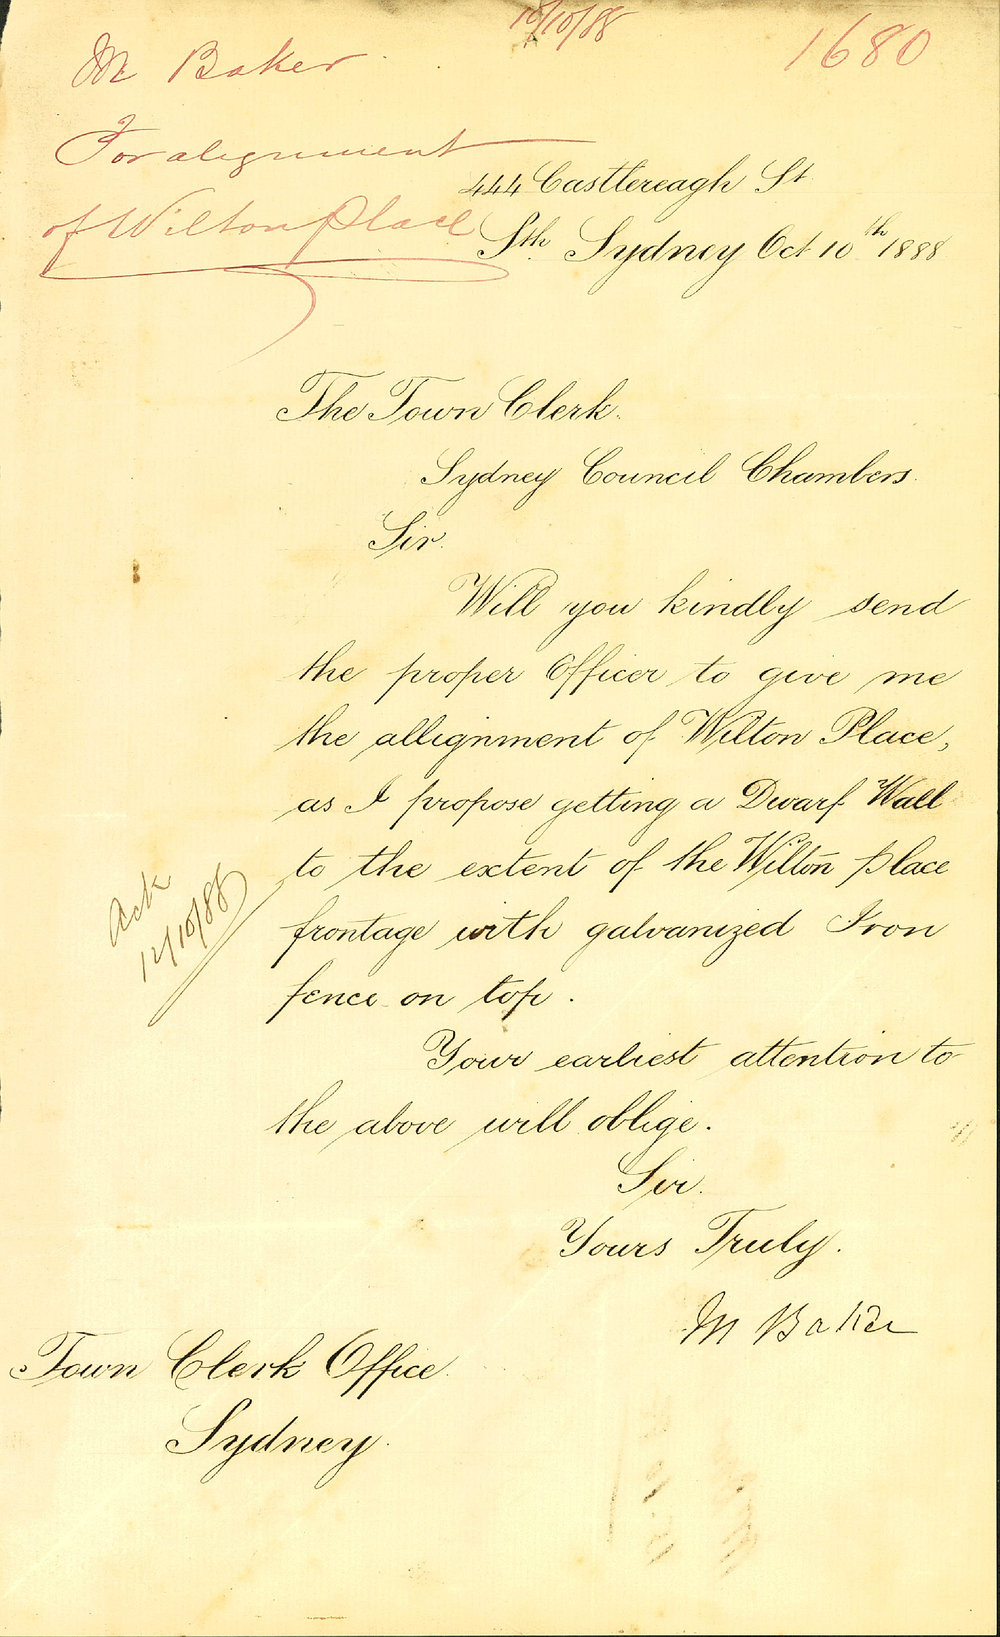 10/10/88
1680
M Baker
For alignment
of Wilton Place
444 Castlereagh St
Sth Sydney Oct 10th 1888
The Town Clerk.
Sydney Council Chambers.
Sir.
Will you kindly send
the proper Officer to give me
the allignment of Wilton Place,
as I propose getting a Dwarf Wall
to the extent of the Wilton place
frontage with galvanized Iron
fence on top.
Ack
12/10/88
Your earliest attention to
the above will oblige.
Sir.
Yours Truly.
M Baker
Town Clerk Office
Sydney.